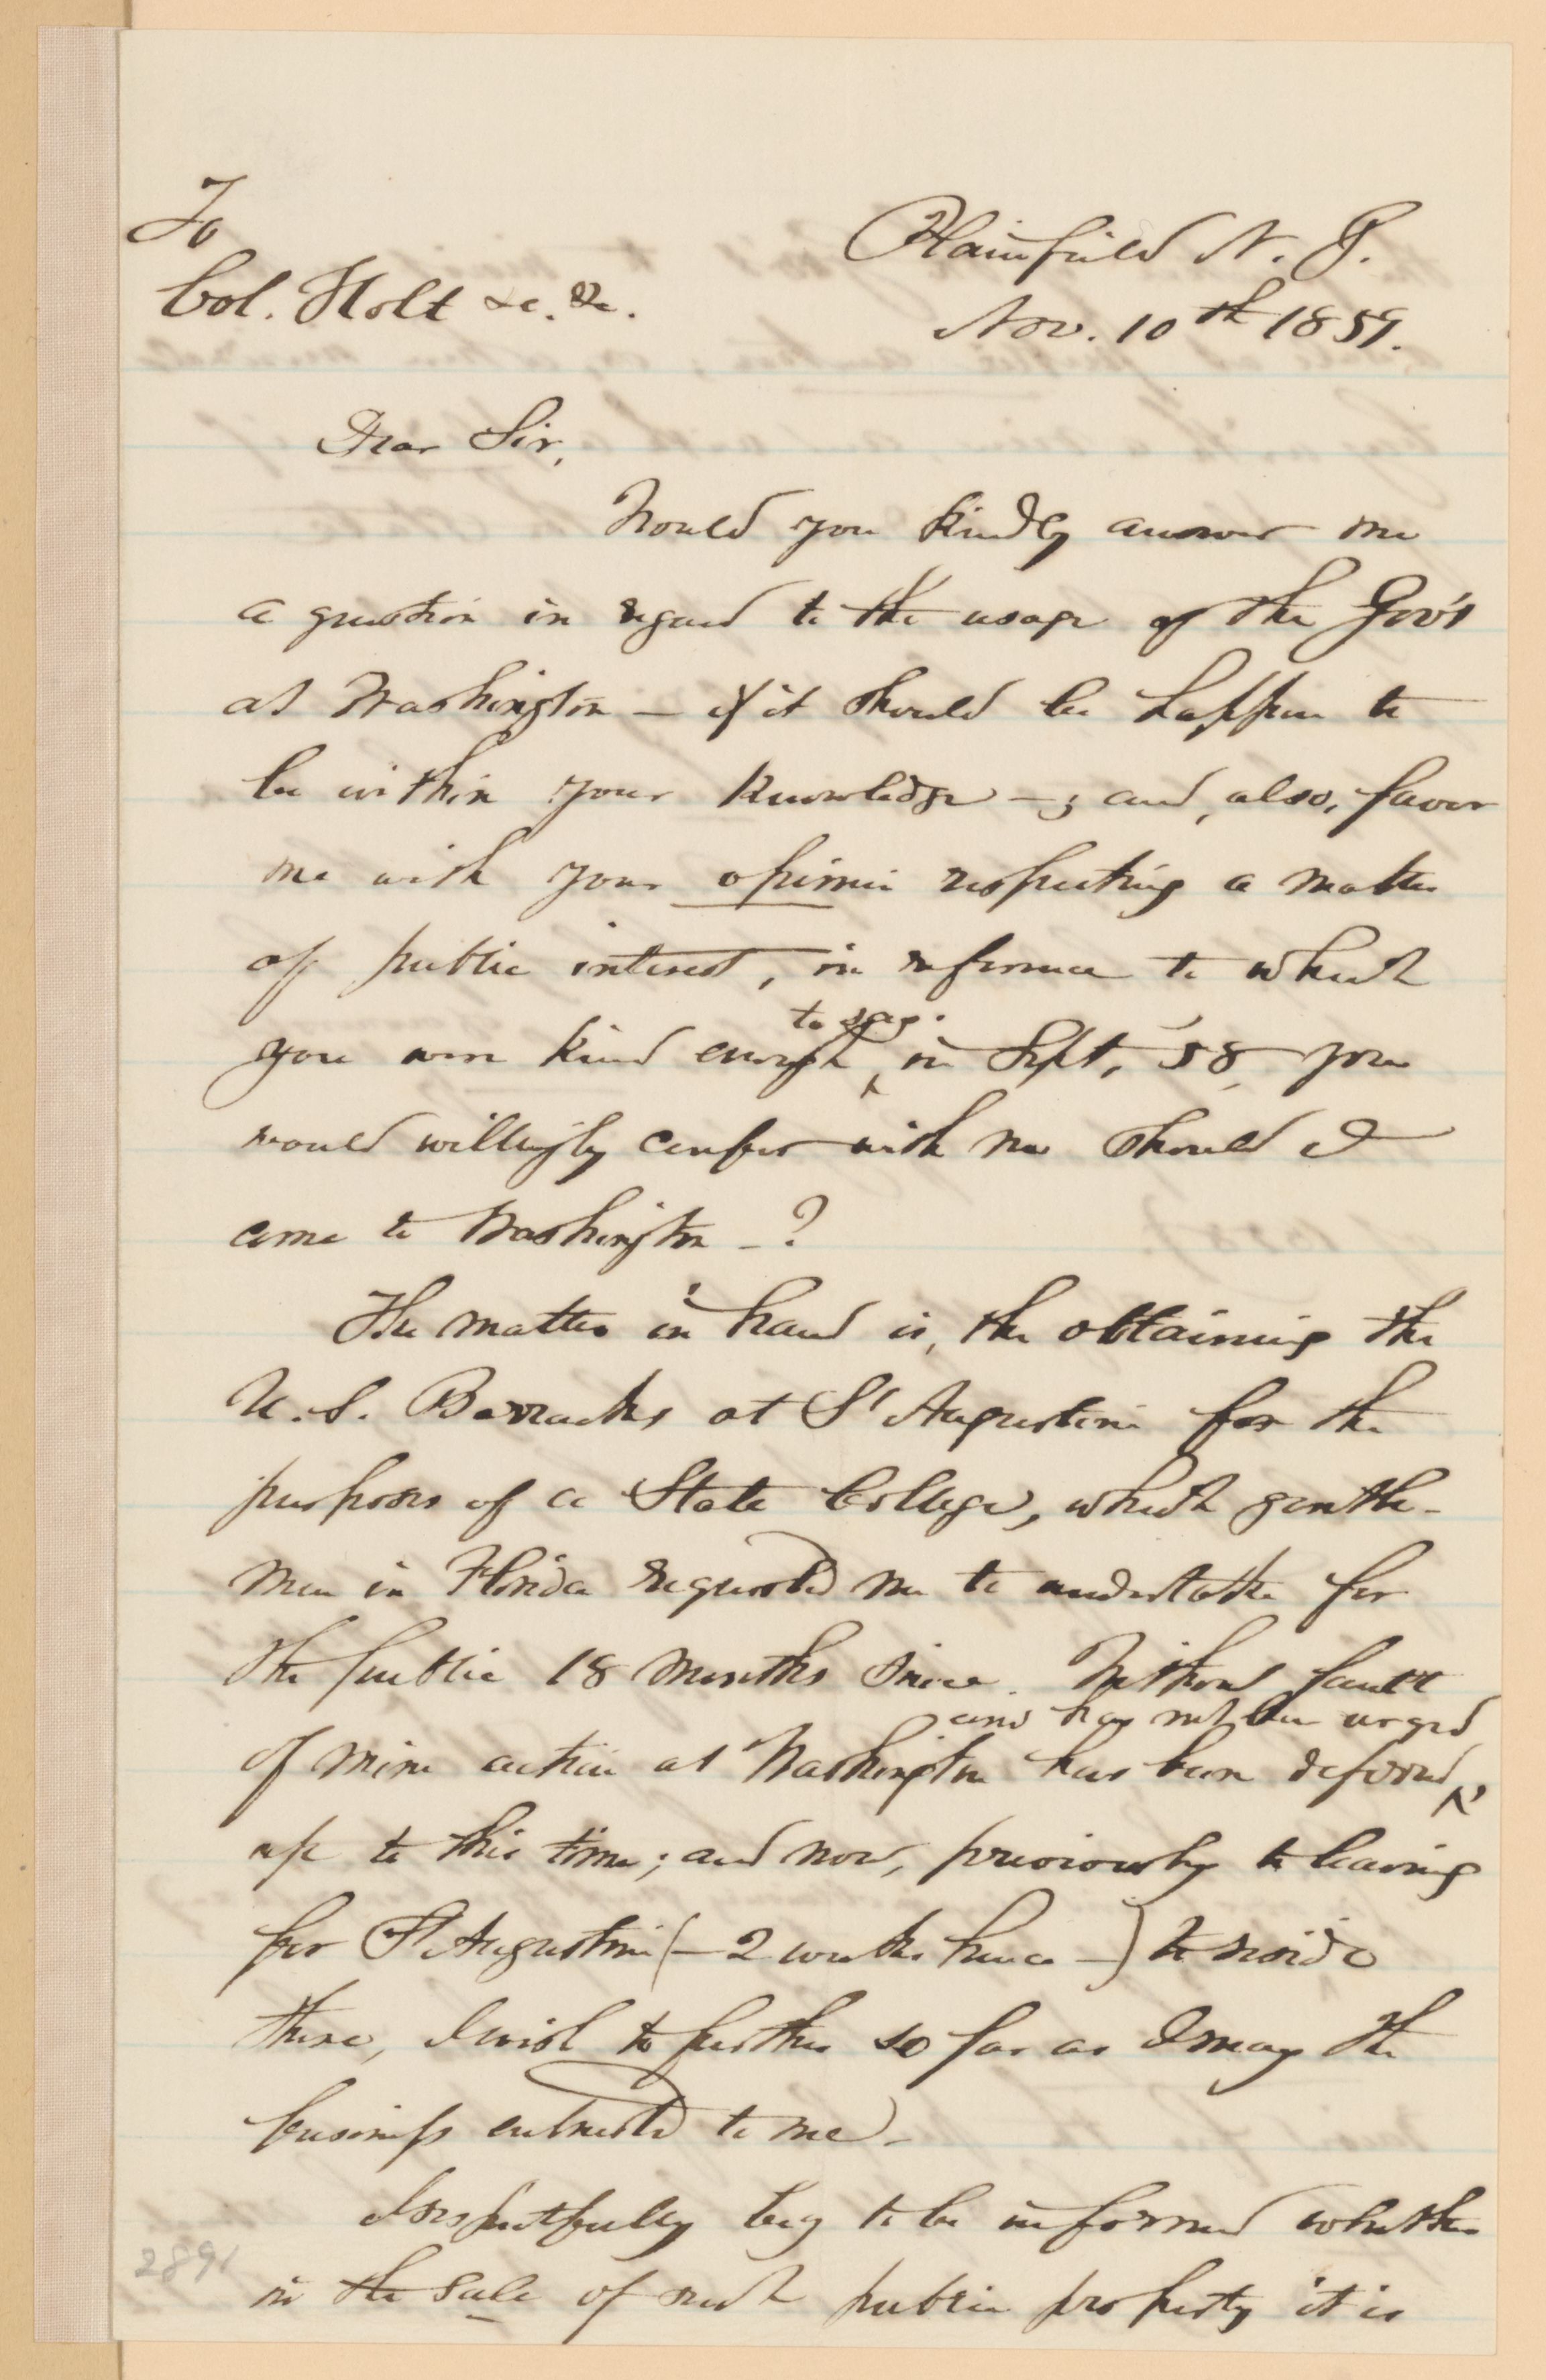 To
Col. Holt &c. &c.
Plainfield N. J.
Nov. 10th 1859.
Dear Sir,
Would you kindly answer me
a question in regard to the usage of the Gov't
at Washington – if it should be happen to
be within your knowledge –; and, also, favor
me with your opinion respecting a matter
of public interest, in reference to which
you were kind enough to say in Sept, '58, you
would willingly confer with me should I
come to Washington –?
The matter in hand is, the obtaining the
U. S. Barracks at St Augustine for the
purposes of a State College, which gentle-
men in Florida requested me to undertake for
the public 18 months since. Without fault
of mine action at Washington has been deferred, and has not been urged
up to this time; and now, previously to leaving
for St Augustine (– 2 weeks hence –) to reside
there, I wish to further so far as I may the
business entrusted to me.
I respectfully beg to be informed whether
in the sale of such public property it is
2891